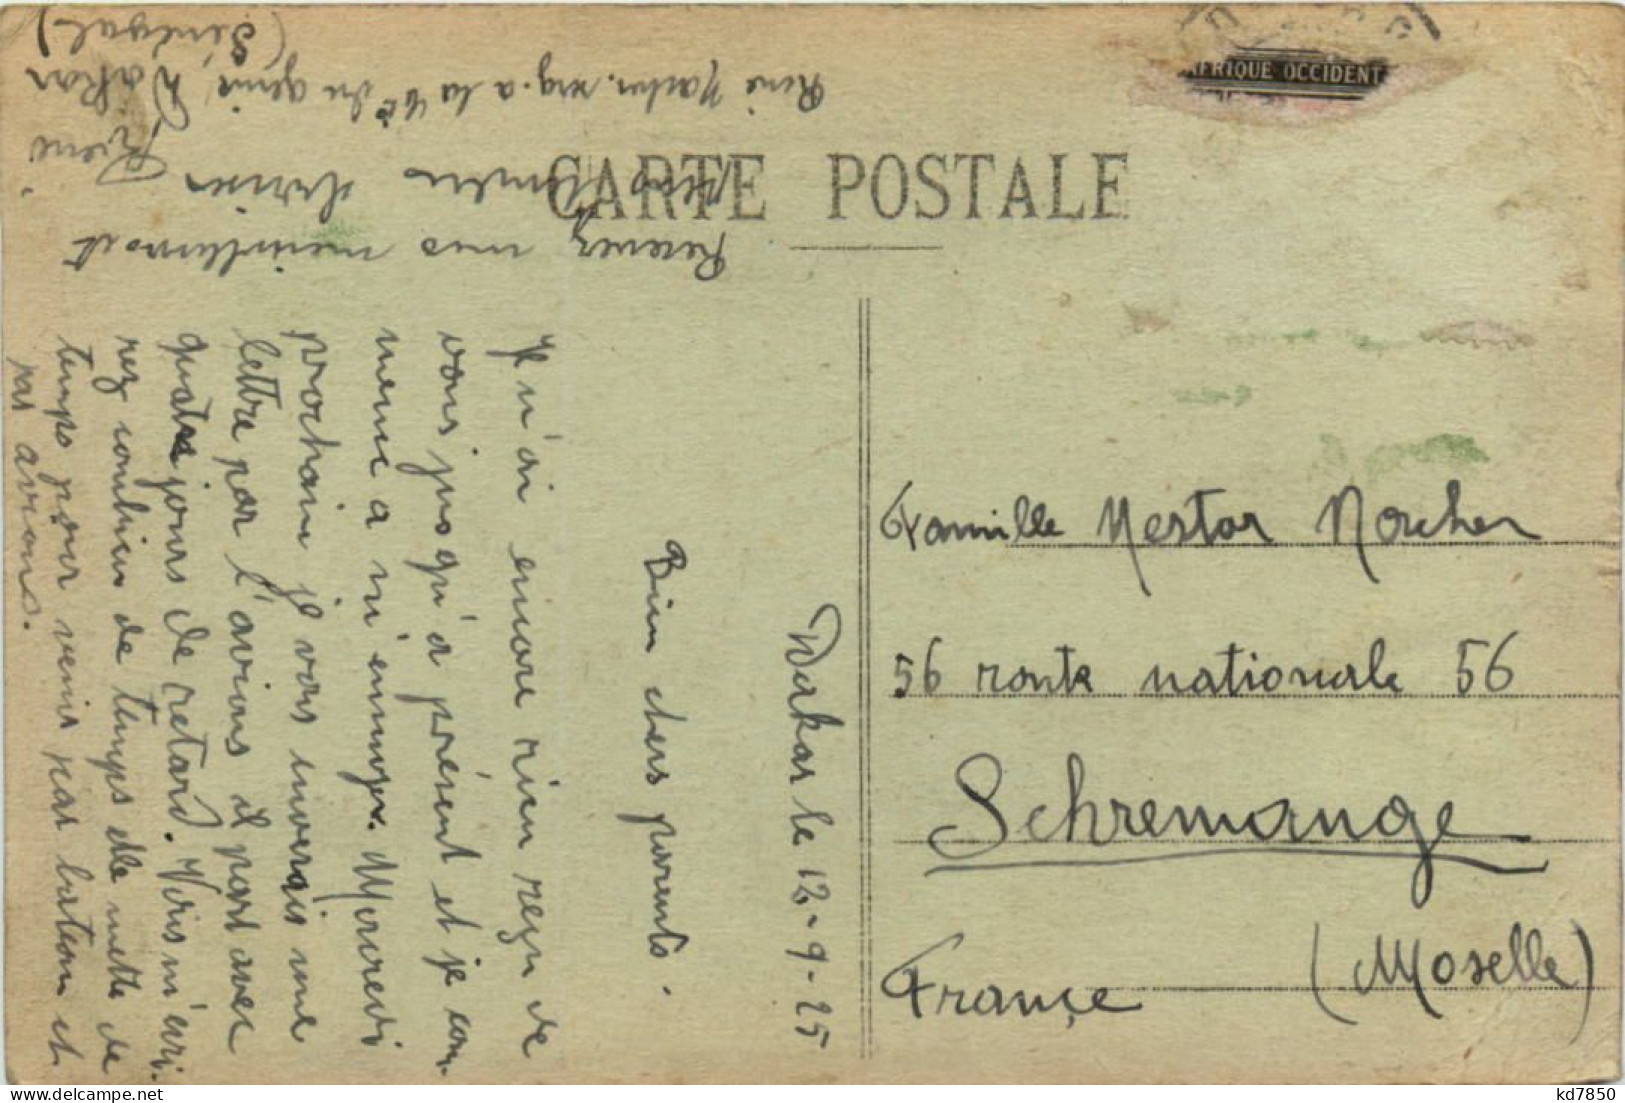 AFRIQUE OCCIDENT
CARTE POSTALE
Dakar le 12-9-25
Bien chers parents.
Je n'ai encore rien reçu de
vous jusqu'à présent et je com-
mence a m'ennuyer. Mercredi
prochain je vous inverrais une
lettre par l'avions il part avec
quatre jours de retard. Vous m'ecri-
rez combien de temps elle mette de
temps pour venir par bateau et
par avions.
Recevez mes meilleurs et
plus tendres baisers
René.
René serg. a la 4e du génie, Dakar
(Sénégal)
Famille Nestor
56 route nationale 56
Schremange
(Moselle)
Françe
kd7850